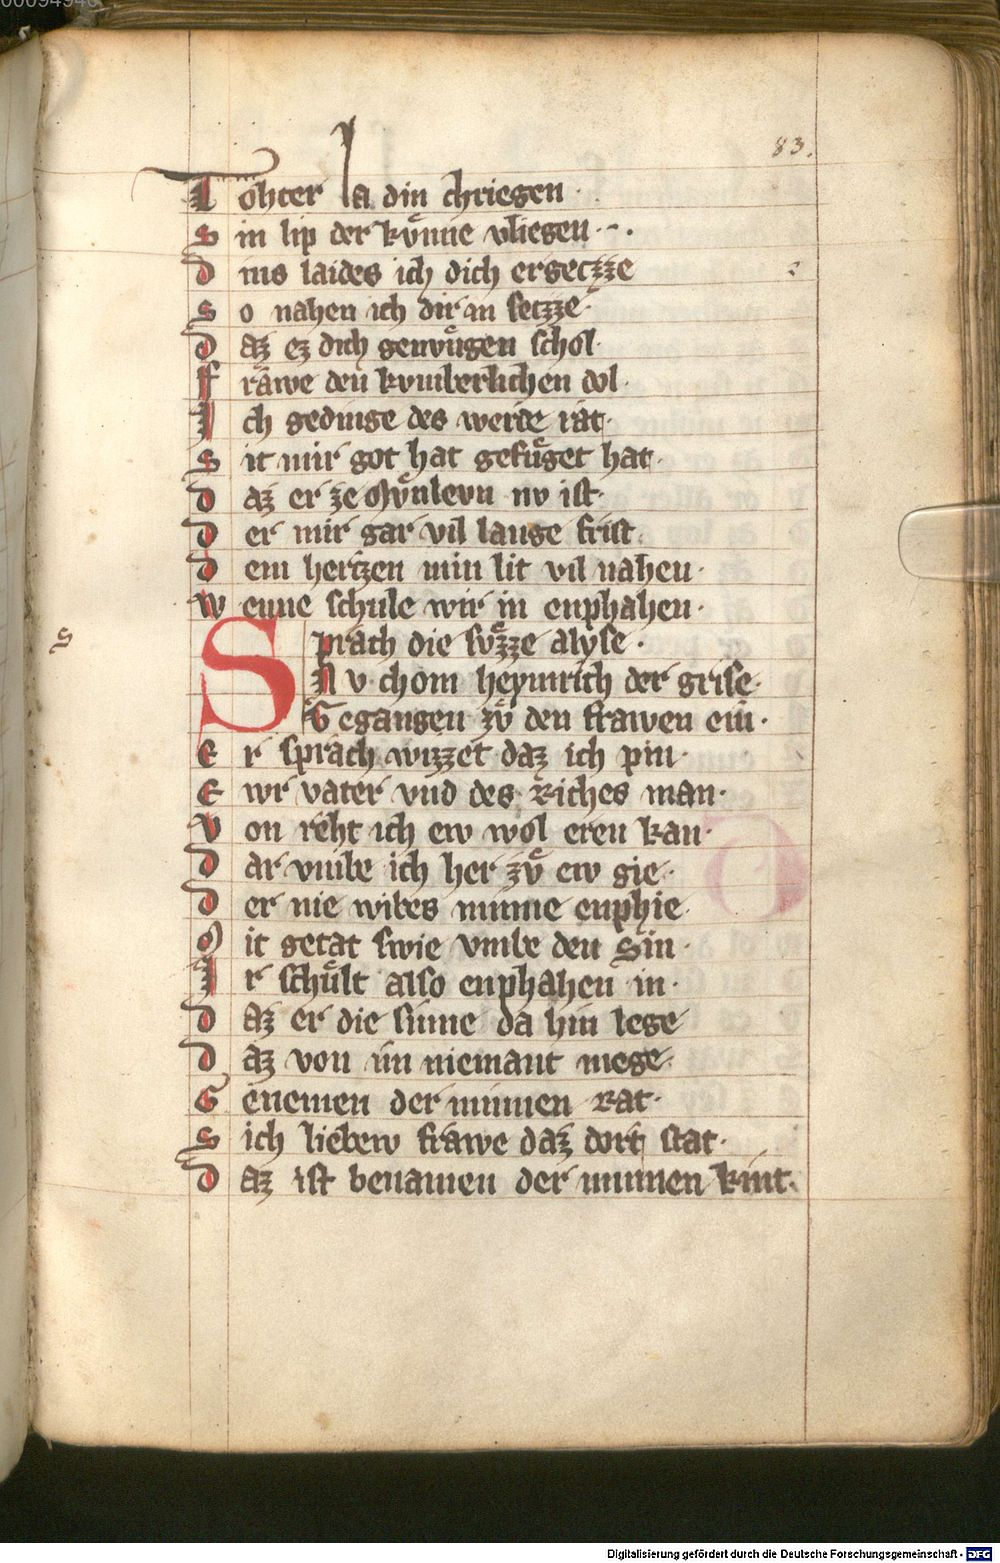 00094946
83.
Tohter la din chriegen ·
s in lip der kvͤnne vliegen · ~ ·
d ins laides ich dich ergeczze
s o nahen ich dir in seczze ·
d az ez dich genvͤgen schol ·
f rawe den kvmberlichen dol ·
J ch gedinge des werde rat ·
s it mir got hat gefuͤget hat ·
d az er ze Mvͤnlevn nv ist ·
d er mir gar vil lange frist ·
d em hertzen min lit vil nahen ·
w enne schule wir in enphahen ·
s
Sprach die svͤzze alyse ·
N v chom heymrich der grise ·
G egangen zvͦ den frawen ein ·
E r sprach wizzet daz ich pin ·
E wr vater vnd des Riches man ·
V on reht ich ew wol eren kan ·
d ar vmbe ich her zvͦ ew gie ·
d er nie wibes minne enphie
M it getat swie vmbe den Sin ·
J r schuͤlt also enphahen in ·
d az er die sinne da hin lege
d az von im niemant mege ·
G enemen der minnen Rat ·
s ich liebew frawe daz dort stat ·
d az ist benamen der minnen kint ·
Digitalisierung gefördert durch die Deutsche Forschungsgemeinschaft - DFG